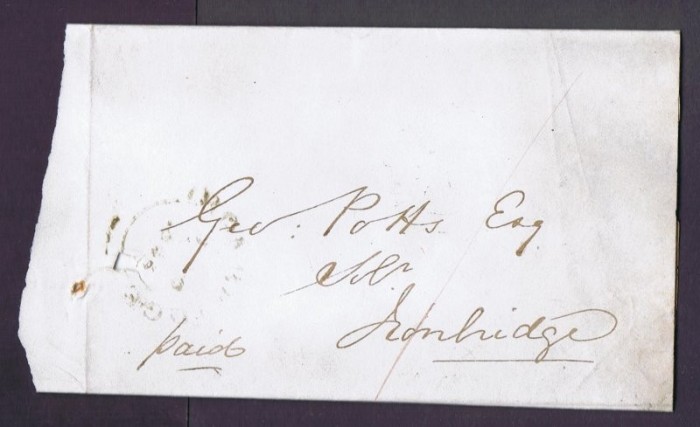 Geo: Potts Esq
Solr
Ironbridge
paid